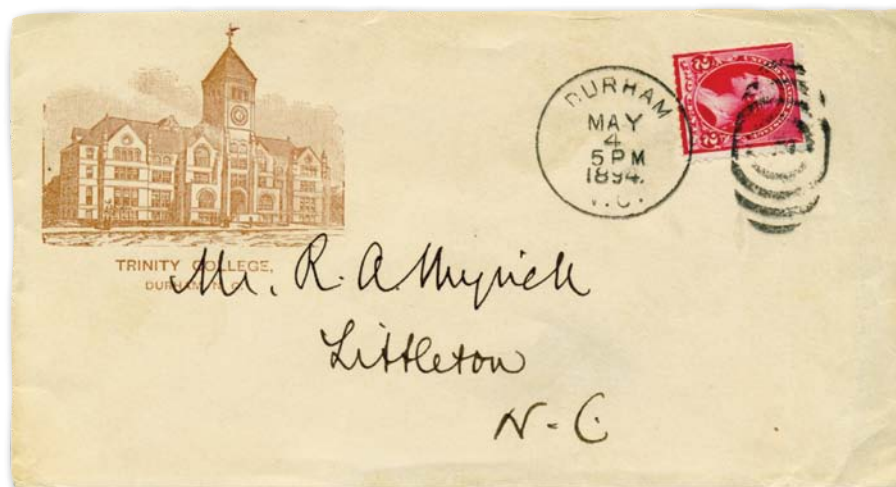 TRINITY COLLEGE,
DURHAM, N. C.
DURHAM
MAY
4
5 PM
1894.
N.C.
Mr. R. A. Myrick
Littleton
N-C